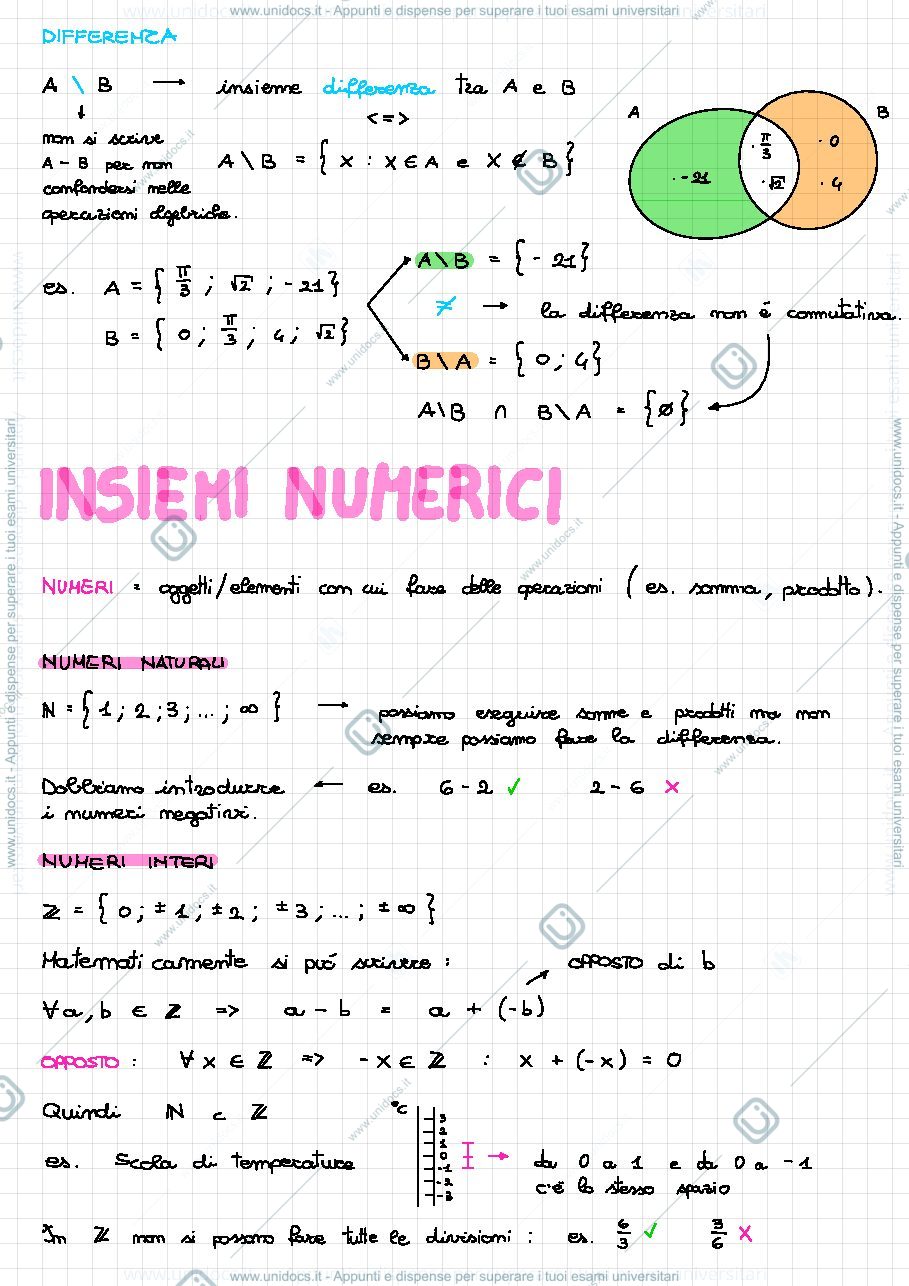 www.unidocs.it - Appunti e dispense per superare i tuoi esami universitari
DIFFERENZA
A \ B → insieme differenza tra A e B
↓
<=>
non si scrive
A - B per non
confondersi nelle
operazioni algebriche.
A \ B = { x : x ∈ A e x ∉ B }
A B
· -21 · π/3 · √2 · 0 · 4
es. A = { π/3 ; √2 ; -21 }
B = { 0 ; π/3 ; 4 ; √2 }
A \ B = { - 21 }
≠ → la differenza non é commutativa.
B \ A = { 0 ; 4 }
A\B ∩ B\A = {∅}
INSIEMI NUMERICI
NUMERI = oggetti/elementi con cui fare delle operazioni ( es. somma, prodotto).
NUMERI NATURALI
N = { 1 ; 2 ; 3 ; ... ; ∞ } → possiamo eseguire somme e prodotti ma non
sempre possiamo fare la differenza.
Dobbiamo introdurre ← es. 6 - 2 ✓ 2 - 6 x
i numeri negativi.
NUMERI INTERI
ℤ = { 0 ; ± 1 ; ± 2 ; ± 3 ; ... ; ± ∞ }
Matematicamente si puó scrivere : OPPOSTO di b
∀ a, b ∈ ℤ => a - b = a + (-b)
OPPOSTO : ∀ x ∈ ℤ => -x ∈ ℤ : x + (-x) = 0
Quindi ℕ ⊂ ℤ
°C
3
2
1
0
-1
-2
-3
es. Scala di temperature → da 0 a 1 e da 0 a -1
c'é lo stesso spazio
In ℤ non si possono fare tutte le divisioni : es. 6/3 ✓ 3/6 x
www.unidocs.it - Appunti e dispense per superare i tuoi esami universitari